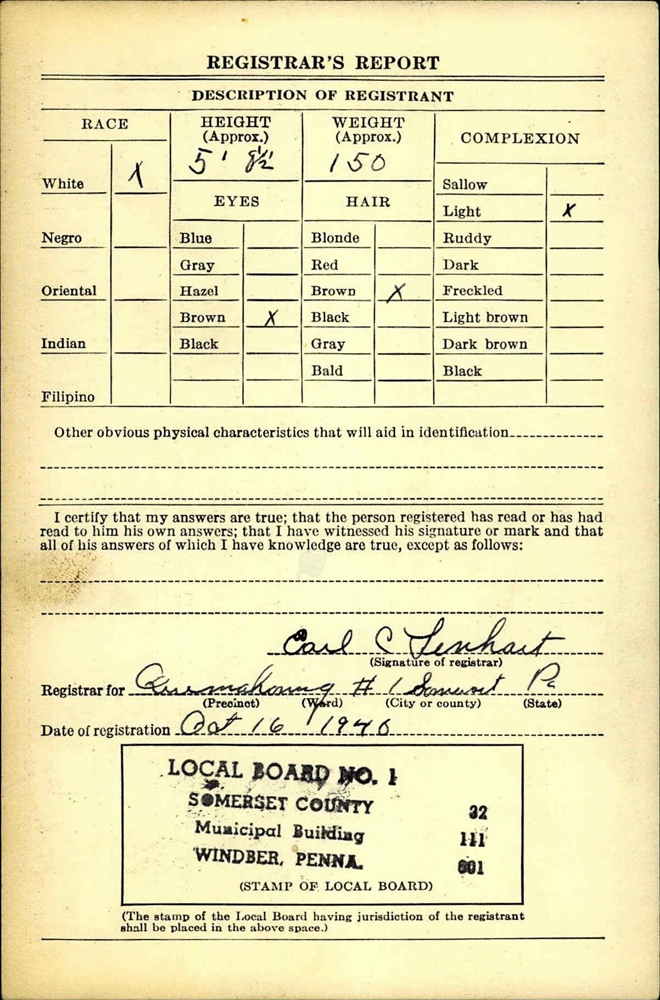 REGISTRAR'S REPORT
DESCRIPTION OF REGISTRANT
RACE
HEIGHT
(Approx.)
5' 8½
WEIGHT
(Approx.)
150
COMPLEXION
White X
EYES
HAIR
Sallow
Light X
Negro
Blue
Blonde
Ruddy
Gray
Red
Dark
Oriental
Hazel
Brown X
Freckled
Brown X
Black
Light brown
Indian
Black
Gray
Dark brown
Bald
Black
Filipino
Other obvious physical characteristics that will aid in identification
I certify that my answers are true; that the person registered has read or has had
read to him his own answers; that I have witnessed his signature or mark and that
all of his answers of which I have knowledge are true, except as follows:
Carl C Lenhart
(Signature of registrar)
Registrar for Quemahoning # 1 Somerset Pa
(Precinct) (Ward) (City or county) (State)
Date of registration Oct 16 1940
LOCAL BOARD NO. 1
SOMERSET COUNTY 32
Municipal Building 111
WINDBER, PENNA. 601
(STAMP OF LOCAL BOARD)
(The stamp of the Local Board having jurisdiction of the registrant
shall be placed in the above space.)